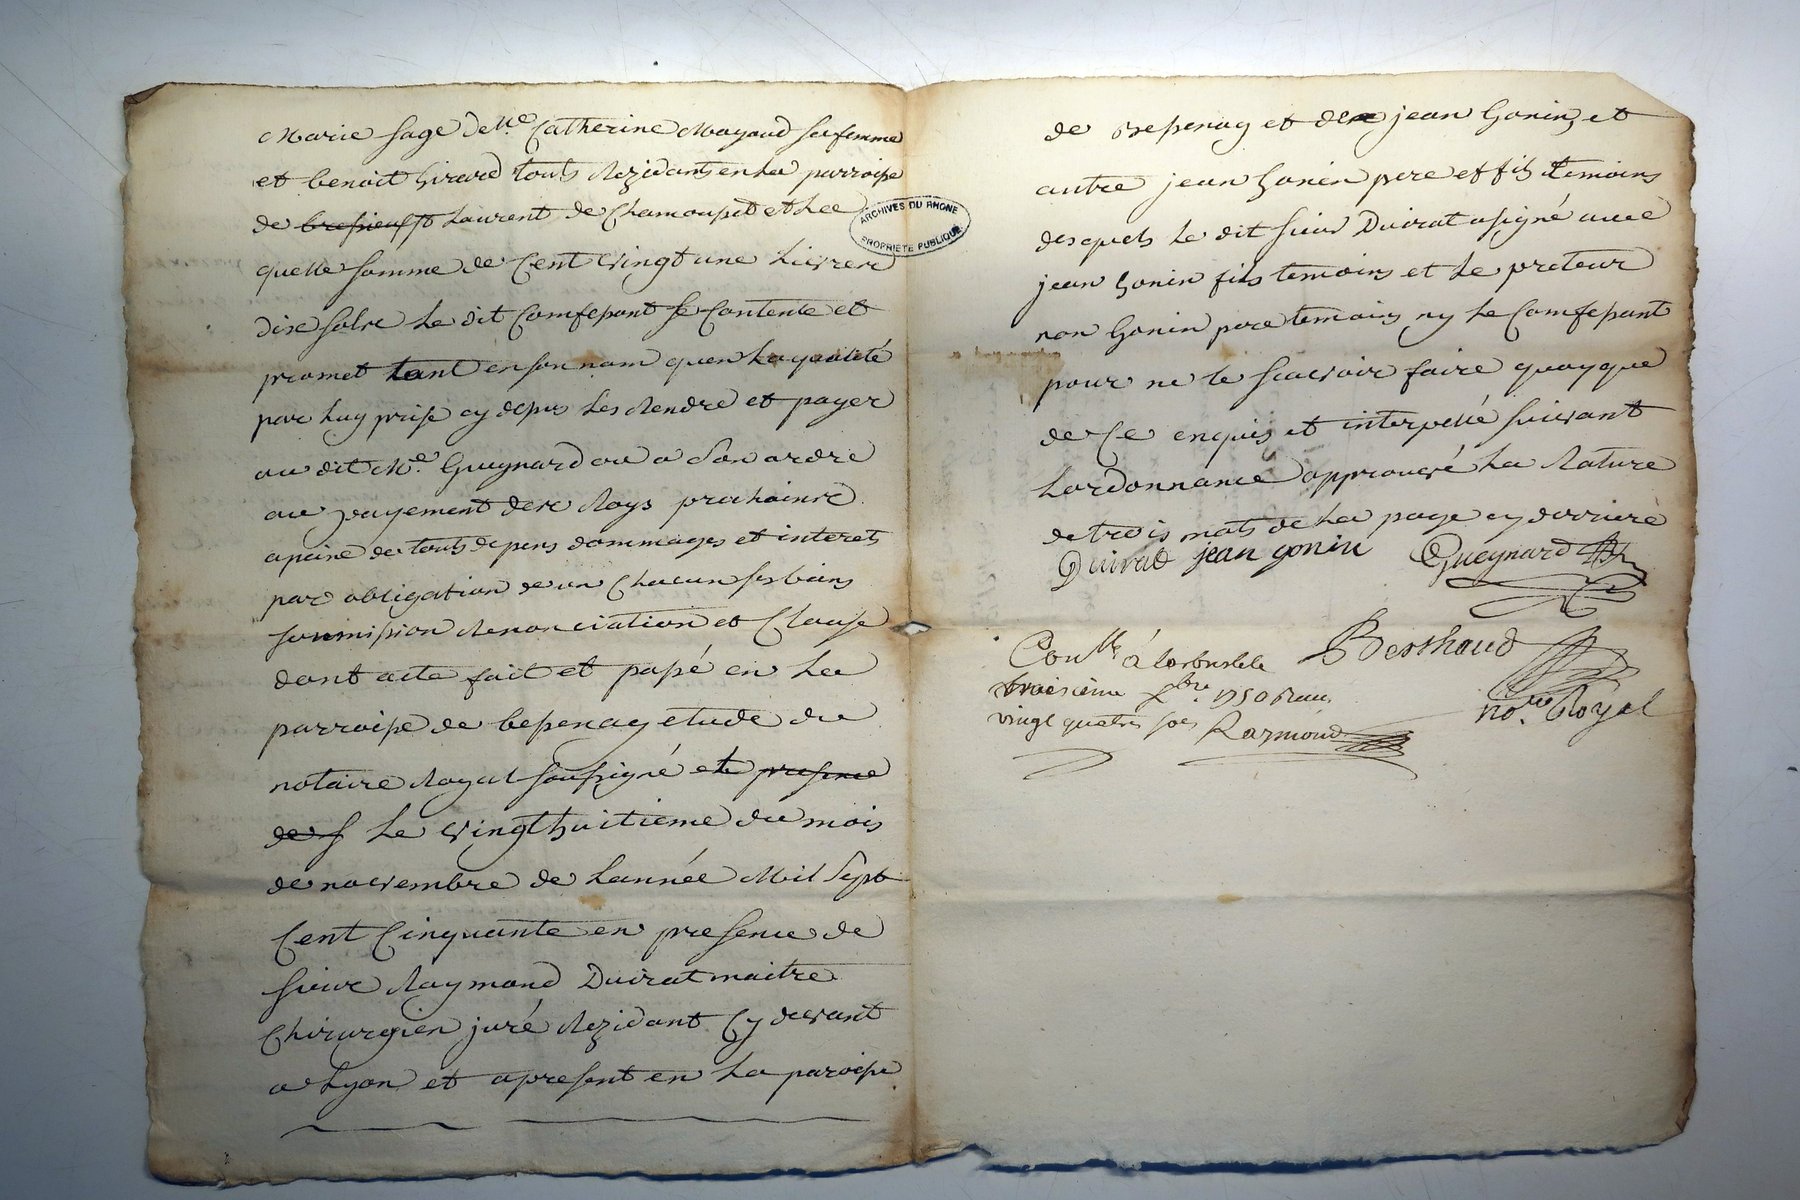 Marie sage de Me. Catherine Mayoud sa femme
et benoit Girard touts Rezidants en La parroisse
de bressieux St Laurent de Chamousset et La
quelle somme de Cent vingt une Livres
dix sols Le dit Confessant se Contente et
promet tant en son nom quen La qualité
par Luy prise cy depus Les Rendre et payer
au dit Me. Gueynard ou a Son ordre
au payement des Roys prochains
a peine de touts depens dommages et interets
par obligation de un Chacun ses biens
soumission Renonciation et Clause
dont acte fait et passé en La
parroisse de bessenay etude du
notaire Royal soussigné et presence
de s Le vingthuitieme du mois
de novembre de Lannée Mil Sept
Cent Cinquante en presence de
sieur Raymond Duirat maitre
Chirurgien juré Rezidant Cy devant
a Lyon et apresent en La paroisse
ARCHIVES DU RHONE
PROPRIETE PUBLIQUE
de bessenay et de jean Gonin, et
autre jean Gonin pere et fils temoins
desquels Le dit sieur Duirat a signé avec
jean Gonin fils temoins et Le preteur
non Gonin pere temoins ny Le Confessant
pour ne le scavoir faire quoyque
de Ce enquis et interpellé suivant
Lordonnance approuvé La Rature
de trois mots de La page cy derriere
Duirat jean gonin Gueynard
Conllé à Larbresle
troisieme Xbre 1750 Reçu
vingt quatre sols Raymond
Berthaud
nore. Royal